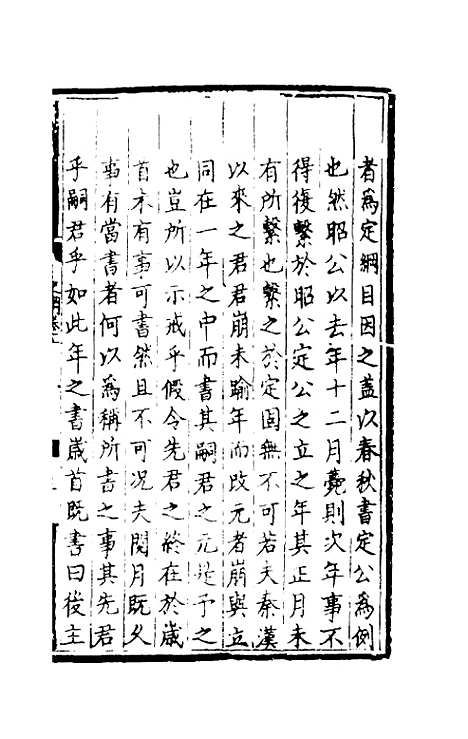 者為定綱目因之蓋以春秋書定公為例
也然昭公以去年十二月薨則次年事不
得復繫於昭公定公之立之年其正月未
有所繫也繫之於定固無不可若夫秦漢
以來之君君崩未踰年而改元者崩與立
同在一年之中而書其嗣君之元是予之
也豈所以示戒乎假令先君之終在於歲
首未有事可書然且不可況夫閱月既久
事有當書者何以為稱所書之事其先君
乎嗣君乎如此年之書歲首既書曰後主